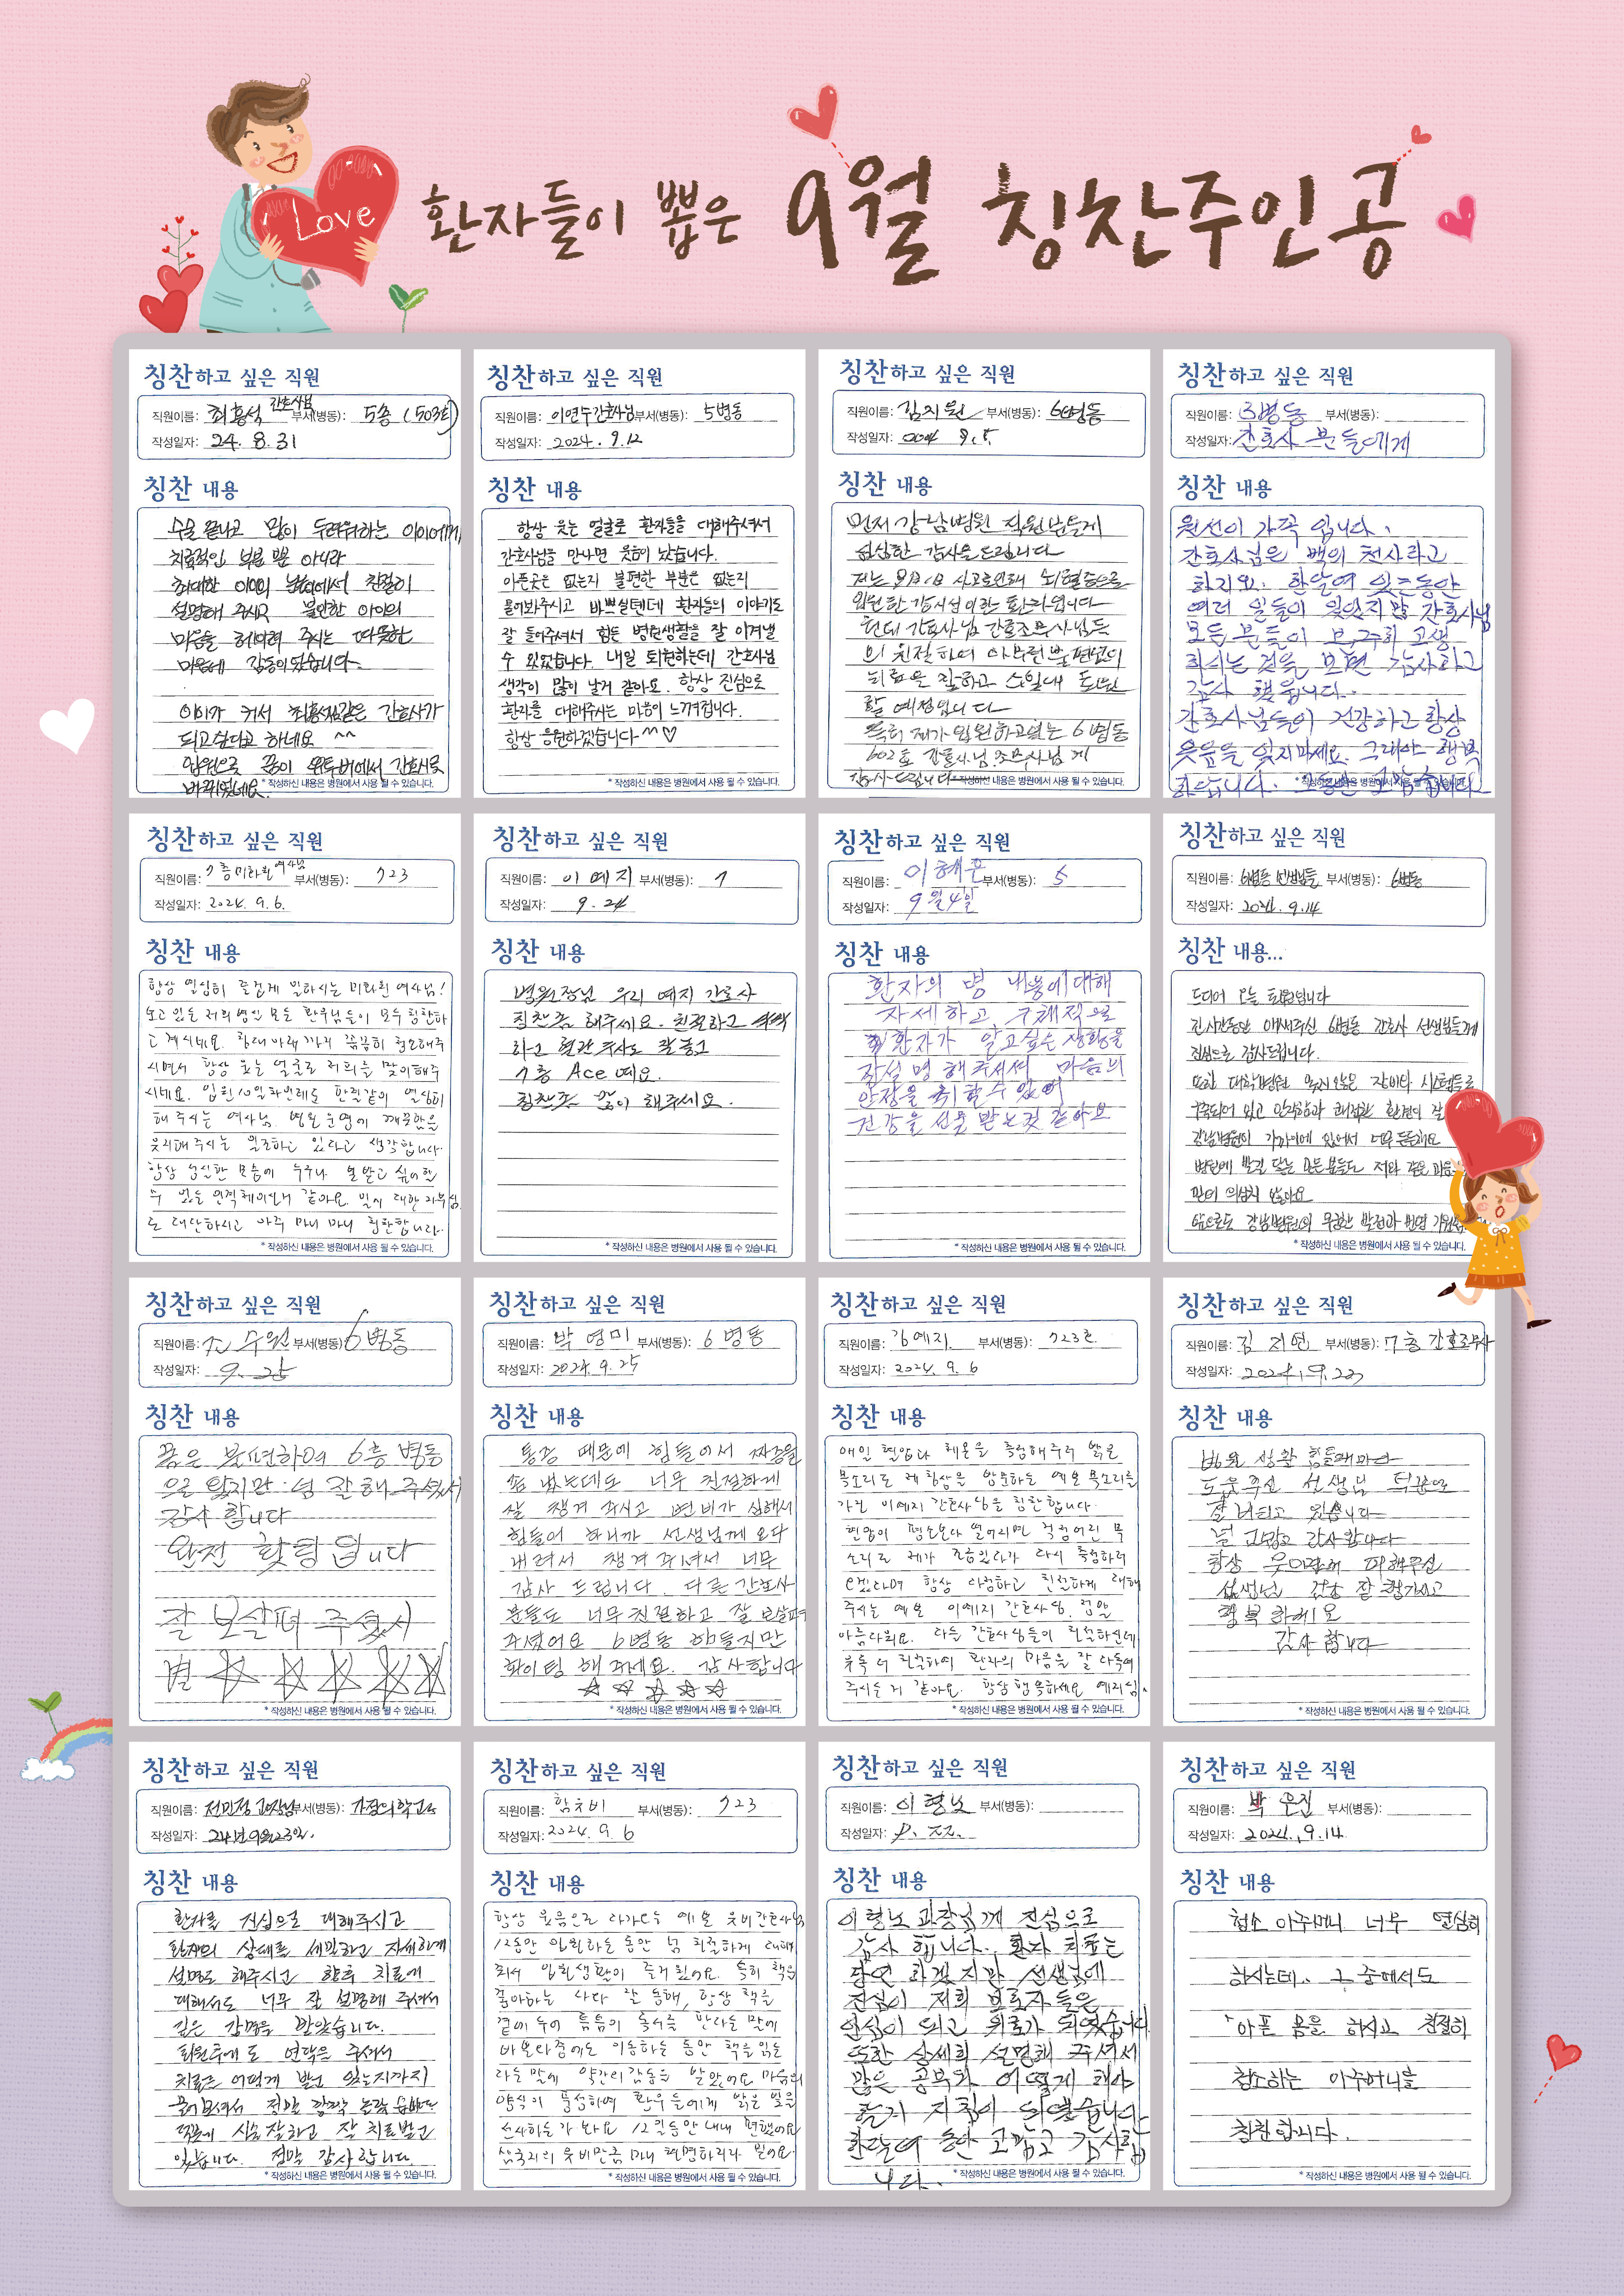 Love
환자들이 뽑은 9월 칭찬주인공
칭찬하고 싶은 직원
직원이름: 최홍석 간호사님 부서(병동): 5층 (503호)
작성일자: 24. 8. 31
칭찬 내용
수술 끝나고 많이 두려워하는 아이에게
치료적인 부분 뿐 아니라
최대한 아이의 눈높이에서 친절히
설명해 주시고 불안한 아이의
마음을 헤아려 주시는 따뜻한
마음에 감동이었습니다.
아이가 커서 최홍석같은 간호사가
되고싶다고 하네요 ^^
입원으로 꿈이 유투버에서 간호사로
바뀌었네요.
* 작성하신 내용은 병원에서 사용 될 수 있습니다.
칭찬하고 싶은 직원
직원이름: 이연두간호사님 부서(병동): 5병동
작성일자: 2024. 9.12
칭찬 내용
항상 웃는 얼굴로 환자들을 대해주셔서
간호사님을 만나면 웃음이 났습니다.
아픈곳은 없는지 불편한 부분은 없는지
물어봐주시고 바쁘실텐데 환자들의 이야기도
잘 들어주셔서 힘든 병원생활을 잘 이겨낼
수 있었습니다. 내일 퇴원하는데 간호사님
생각이 많이 날거 같아요. 항상 진심으로
환자를 대해주시는 마음이 느껴집니다.
항상 응원하겠습니다 ^^♡
* 작성하신 내용은 병원에서 사용 될 수 있습니다.
칭찬하고 싶은 직원
직원이름: 김지원 부서(병동): 6병동
작성일자: 2024 9.5.
칭찬 내용
먼저 강남병원 직원님들게
심심한 감사을 드립니다
저는 사고로인해 뇌혈
입원한 환자입니다
현데 간호사님 간호조무사님들
의 친절하며 아무런불편없이
치료을 잘하고 토원
할 예정입니다
특히 제가 입원하고있는 6병동
602호 간호사님 조무사님 게
감사드립니다
칭찬하고 싶은 직원
직원이름: 3병동 부서(병동):
작성일자: 간호사 분들에게
칭찬 내용
원선이 가족 입니다.
간호사님은 백의 천사라고
하지요. 한달여 있는동안
여러 일들이 있었지만 간호사님
모든 분들이 분주히 고생
하시는 것을 보면 감사하고
감사 했읍니다.
간호사님들이 건강하고 항상
웃음을 잊지마세요. 그래야 행복
하답니다. 그동안 고맙습니다
* 작성하신 내용은 병원에서 사용 될 수 있습니다.
칭찬하고 싶은 직원
직원이름: 7층미화원여사님 부서(병동): 723
작성일자: 2024. 9. 6.
칭찬 내용
항상 열심히 즐겁게 일하시는 미화원 여사님!
보고 있는 저희 병인 모든 환우님들이 모두 칭찬하
고 계시네요. 침대 아래까지 꼼꼼히 청소해주
시면서 항상 웃는 얼굴로 저희를 맞이해주
시네요. 입원 10일차인데도 한결같이 열심히
해 주시는 여사님. 병원 운영에 깨끗함을
유지해주시는 일조하고 있다고 생각합니다.
항상 성실한 모습에 누구나 본받고 싶어할
수 있는 인격체이신거 같아요. 일에 대한 자부심
도 대단하시고 아주 마니 마니 칭찬합니다.
* 작성하신 내용은 병원에서 사용 될 수 있습니다.
칭찬하고 싶은 직원
직원이름: 이예지 부서(병동): 7
작성일자: 9. 24
칭찬 내용
병원장님 우리 예지 간호사
칭찬좀 해주세요. 친절하고 싹싹
하고 혈관주사도 잘놓고
7층 Ace 예요.
칭찬좀 많이 해주세요.
* 작성하신 내용은 병원에서 사용 될 수 있습니다.
칭찬하고 싶은 직원
직원이름: 이혜은 부서(병동): 5
작성일자: 9월4일
칭찬 내용
환자의 병 내용에대해
자세하고 구체적으로
환자가 알고싶은 상황을
잘설명해주셔서 마음의
안정을 취할수 있어
건강을 선물 받는것 같아요
* 작성하신 내용은 병원에서 사용 될 수 있습니다.
칭찬하고 싶은 직원
직원이름: 6병동 선생님들 부서(병동): 6병동
작성일자: 2024. 9.14
칭찬 내용...
드디어 오늘 퇴원입니다
긴시간동안 애써주신 6병동 간호사 선생님들께
진심으로 감사드립니다.
또한 대학병원 못지않은 장비나 시스템들로
구축되어 있고 안락함과 쾌적한 환경의 잘
강남병원이 가까이에 있어서 너무 든든해요
병원에 발길 닿는 모든분들도 저와 같은 마음
만이 의심치 않아요
앞으로도 강남병원의 무한한 발전과 번영 기원
* 작성하신 내용은 병원에서 사용 될 수 있습니다.
칭찬하고 싶은 직원
직원이름: 수원 부서(병동): 6병동
작성일자: 9. 25
칭찬 내용
몸은 불편하여 6층 병동
으로 왔지만 넘 잘해 주셔서
감사 합니다
완전 힐링 입니다
잘 보살펴 주셨서
별 ☆ ☆ ☆ ☆ ☆
* 작성하신 내용은 병원에서 사용 될 수 있습니다.
칭찬하고 싶은 직원
직원이름: 박영미 부서(병동): 6 병동
작성일자: 2024. 9. 25
칭찬 내용
통증 때문에 힘들어서 짜증을
좀 냈는데도 너무 친절하게
잘 챙겨 주시고 변비가 심해서
힘들어 하니까 선생님께 오다
내려서 챙겨 주셔서 너무
감사 드립니다. 다른 간호사
분들도 너무 친절하고 잘 보살펴
주셨어요 6병동 힘들지만
화이팅 해 주세요. 감사합니다
☆ ☆ ☆ ☆ ☆
* 작성하신 내용은 병원에서 사용 될 수 있습니다.
칭찬하고 싶은 직원
직원이름: 예지 부서(병동): 723호
작성일자: 2024. 9. 6
칭찬 내용
매일 혈압과 체온을 측정해주러 밝은
목소리로 제 침상을 방문하는 예쁜 목소리를
가진 이예지 간호사님을 칭찬합니다.
혈압이 평소보다 떨어지면 걱정어린 목
소리로 제가 조금있다가 다시 측정하러
오겠다며 항상 다정하고 친절하게 대해
주시는 예쁜 이예지 간호사님, 정말
아름다워요. 다른 간호사님들이 친절하신데
유독 더 친절하여 환자의 마음을 잘 다독여
주시는거 같아요. 항상행복하세요 예지님.
* 작성하신 내용은 병원에서 사용 될 수 있습니다.
칭찬하고 싶은 직원
직원이름: 김 저연 부서(병동): 7층 간호조무사
작성일자: 2024. 9. 23
칭찬 내용
병원 생활 힘들때마다
도움주신 선생님 덕분으로
잘 버티고 있습니다
널 고맙고 감사합니다
항상 웃으면서 대해주신
선생님 건강 잘 챙기시고
행복 하세요
감사 합니다
* 작성하신 내용은 병원에서 사용 될 수 있습니다.
칭찬하고 싶은 직원
직원이름: 전민정 과장님 부서(병동): 가정의학고ㅏ
작성일자: 24년9월23일.
칭찬 내용
환자를 진심으로 대해주시고
환자의 상태를 세밀하고 자세하게
설명도 해주시고 향후 치료에
대해서도 너무 잘 설명해 주셔서
깊은 감명을 받았습니다.
퇴원후에도 연락을 주셔서
치료는 어떻게 받고 있는지까지
물어보셔서 정말 깜짝 놀랐습니다
덕분에 식사 잘하고 잘 치료받고
있습니다. 정말 감사합니다.
* 작성하신 내용은 병원에서 사용 될 수 있습니다.
칭찬하고 싶은 직원
직원이름: 함유비 부서(병동): 723
작성일자: 2024. 9. 6
칭찬 내용
항상 웃음으로 다가오는 예쁜 유비간호사님
12동안 입원하는 동안 넘 친절하게 대해
줘서 입원생활이 즐거웠어요. 특히 책을
좋아하는 나와 잘 통해, 항상 책을
곁에 두어 틈틈이 독서를 한다는 말에
바쁜와중에도 이동하는 동안 책을 읽는
다는 말에 약간의감동을 받았어요. 마음의
양식이 풍성하여 환우들에게 밝은 빛을
선사하는가 봐요 12일동안 내내 편했어요
삼국지의 유비만큼 마니 현명하리라 믿어요.
* 작성하신 내용은 병원에서 사용 될 수 있습니다.
칭찬하고 싶은 직원
직원이름: 이형노 부서(병동):
작성일자: 9. 22.
칭찬 내용
이형노 과장님께 진심으로
감사 합니다. 환자 치료는
당연 하겠지만 선생님에
진심이 저희 보호자 들은
안심이 되고 위로가 되었습니다.
또한 상세히 설명해 주셔서
많은 공부와 어떻게 해야
할지 지침이 되었습니다
한달여 동안 고맙고 감사합
니다.
* 작성하신 내용은 병원에서 사용 될 수 있습니다.
칭찬하고 싶은 직원
직원이름: 박 은진 부서(병동):
작성일자: 2024. 9.14
칭찬 내용
청소 아주머니 너무 열심히
하시는데. 그 중에서도
아픈 몸을 하시고 친절히
청소하는 아주머니을
칭찬합니다.
* 작성하신 내용은 병원에서 사용 될 수 있습니다.